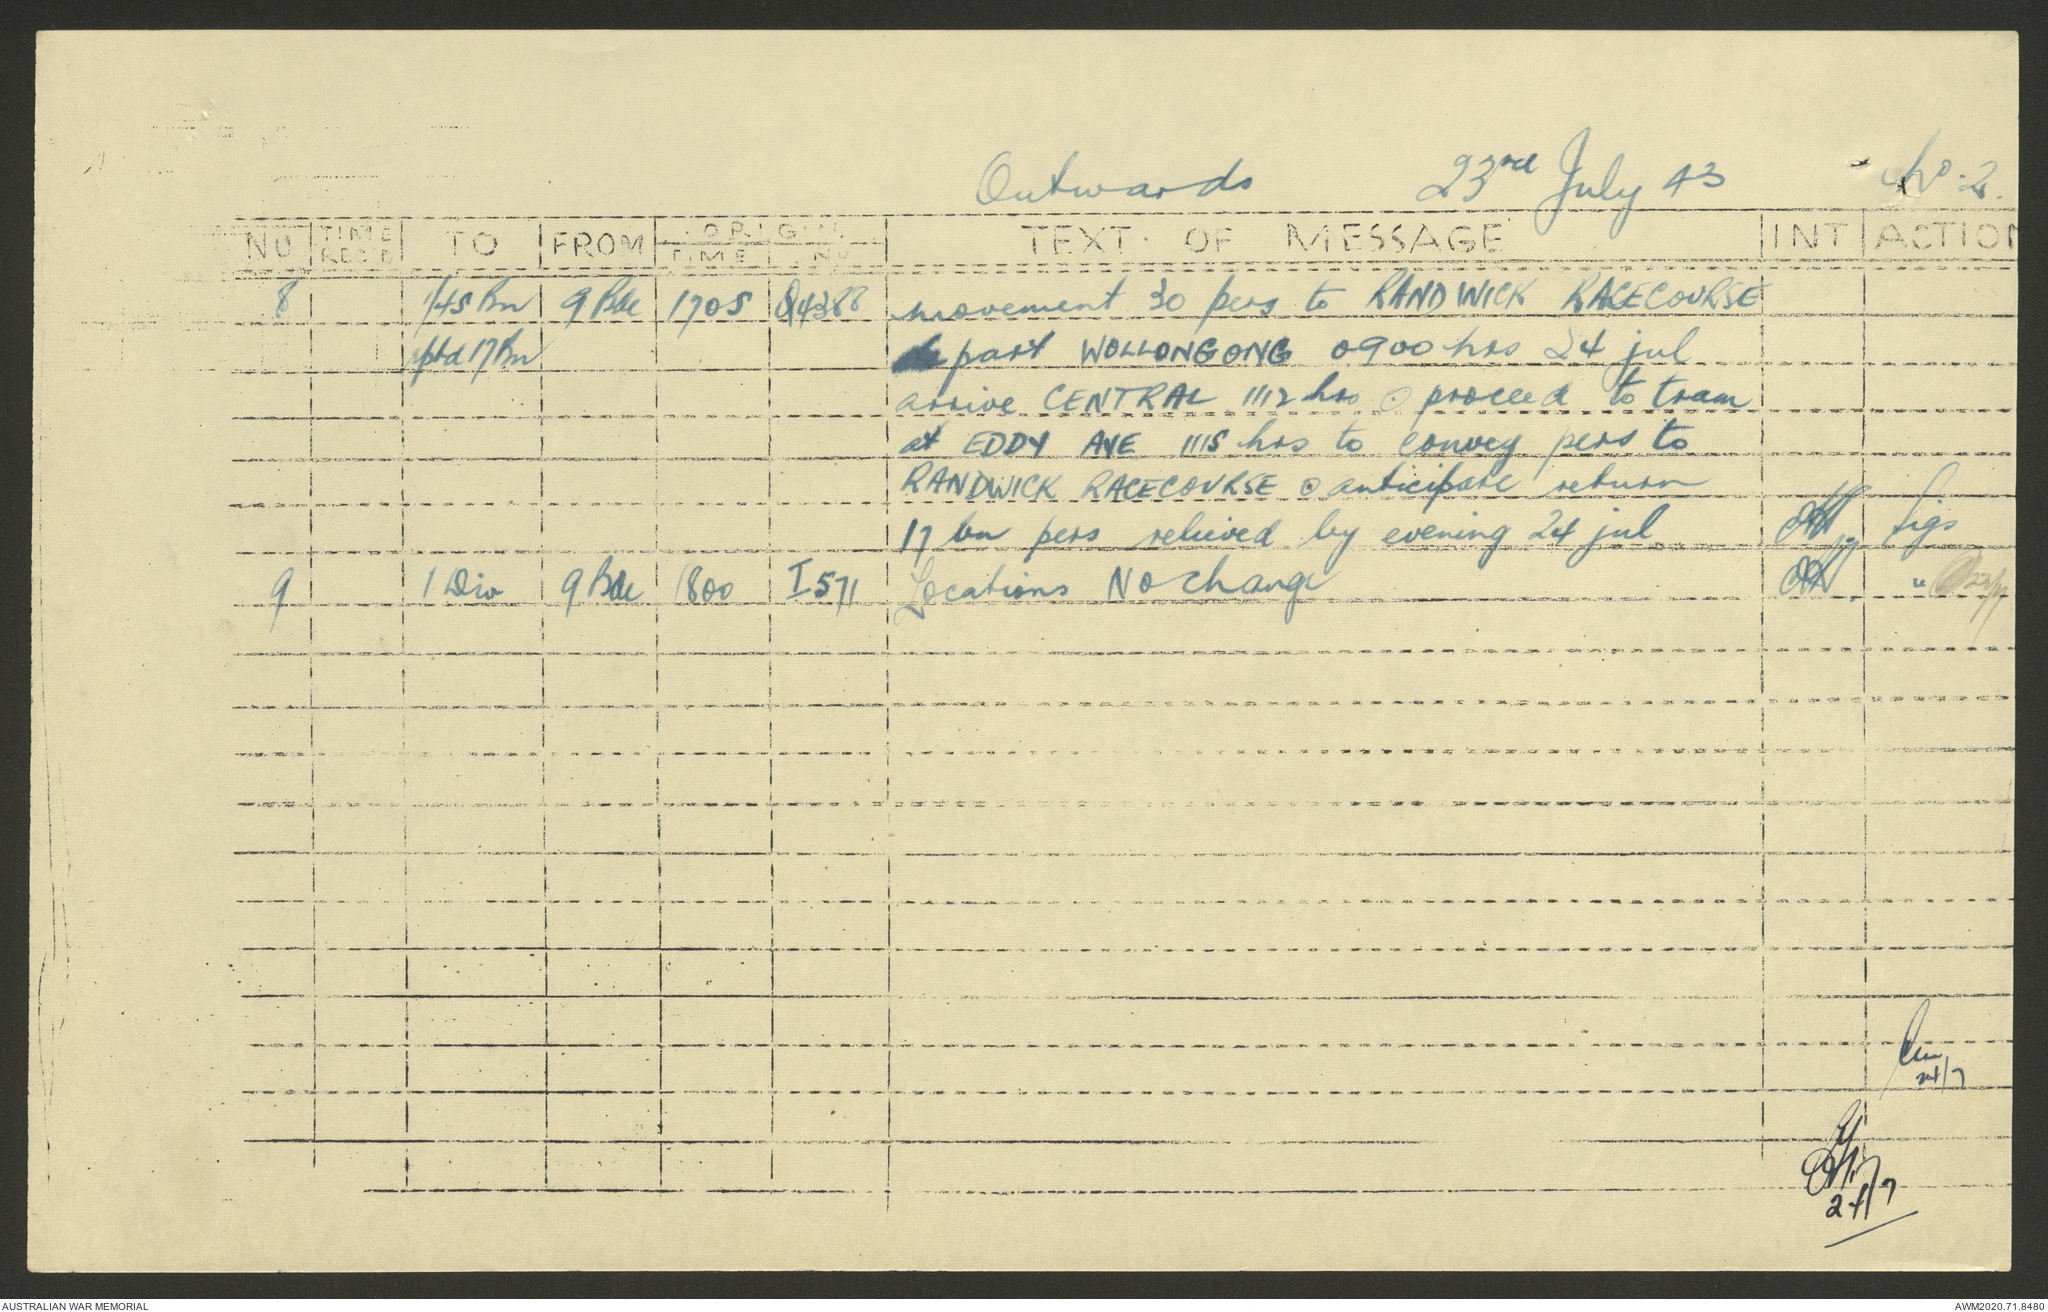 Outwards 23rd July 43 No. 2.
NO TIME RECD TO FROM ORIGIN TIME NO TEXT OF MESSAGE INT ACTION
8 1/45 Bn 9 Bde 1705 Q4388 movement 30 pers to RANDWICK RACECOURSE
rptd 17 Bn depart WOLLONGONG 0900 hrs 24 jul
arrive CENTRAL 1112 hrs ⊙ proceed to tram
at EDDY AVE 1115 hrs to convey pers to
RANDWICK RACECOURSE ⊙ anticipate return
17 bn pers relieved by evening 24 jul Sigs
9 1 Div 9 Bde 1800 I571 Locations No change "
24/7
24/7
AUSTRALIAN WAR MEMORIAL AWM2020.71.8480